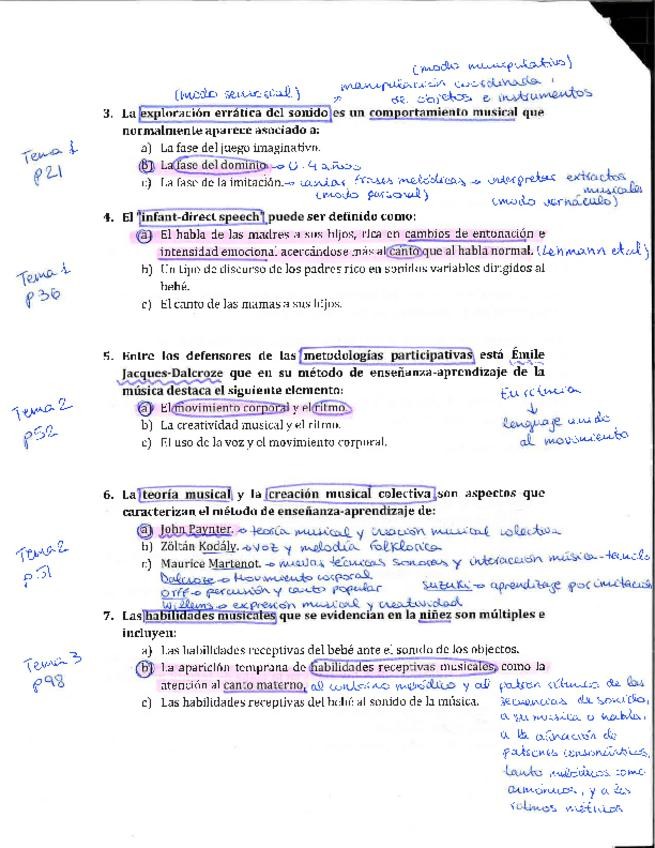 (modo manipulativo)
(modo sensorial) manipulación coordinada
de objetos e instrumentos
3. La exploración errática del sonido es un comportamiento musical que
normalmente aparece asociado a:
a) La fase del juego imaginativo.
b) La fase del dominio. → 0-4 años
c) La fase de la imitación. → cantar frases melódicas → interpretar extractos
musicales
(modo personal) (modo vernáculo)
Tema 1
p21
4. El "infant-direct speech" puede ser definido como:
a) El habla de las madres a sus hijos, rica en cambios de entonación e
intensidad emocional acercándose más al canto que al habla normal. (Lehmann et al)
b) Un tipo de discurso de los padres rico en sonidos variables dirigidos al
bebé.
c) El canto de las mamas a sus hijos.
Tema 1
p36
5. Entre los defensores de las metodologías participativas está Émile
Jacques-Dalcroze que en su método de enseñanza-aprendizaje de la
música destaca el siguiente elemento:
a) El movimiento corporal y el ritmo.
b) La creatividad musical y el ritmo.
c) El uso de la voz y el movimiento corporal.
Tema 2
p52
Euritmia
↓
lenguaje unido
al movimiento
6. La teoría musical y la creación musical colectiva son aspectos que
caracterizan el método de enseñanza-aprendizaje de:
a) John Paynter. → teoría musical y creación musical colectiva
b) Zóltán Kodály. → voz y melodía folklorica
c) Maurice Martenot. → nuevas técnicas sonoras y interacción música-
Dalcroze → Movimiento corporal
Orff → percusión y canto popular Suzuki → aprendizaje por imitación
Willems → expresión musical y creatividad
Tema 2
p.51
7. Las habilidades musicales que se evidencian en la niñez son múltiples e
incluyen:
a) Las habilidades receptivas del bebé ante el sonido de los objetos.
b) La aparición temprana de habilidades receptivas musicales, como la
atención al canto materno, al contorno melódico y al patrón rítmico de las
c) Las habilidades receptivas del bebé al sonido de la música.
secuencias de sonido,
a su música o habla,
a la afinación de
patrones consonánticos,
tanto melódicos como
armónicos, y a los
ritmos métricos
Tema 3
p98